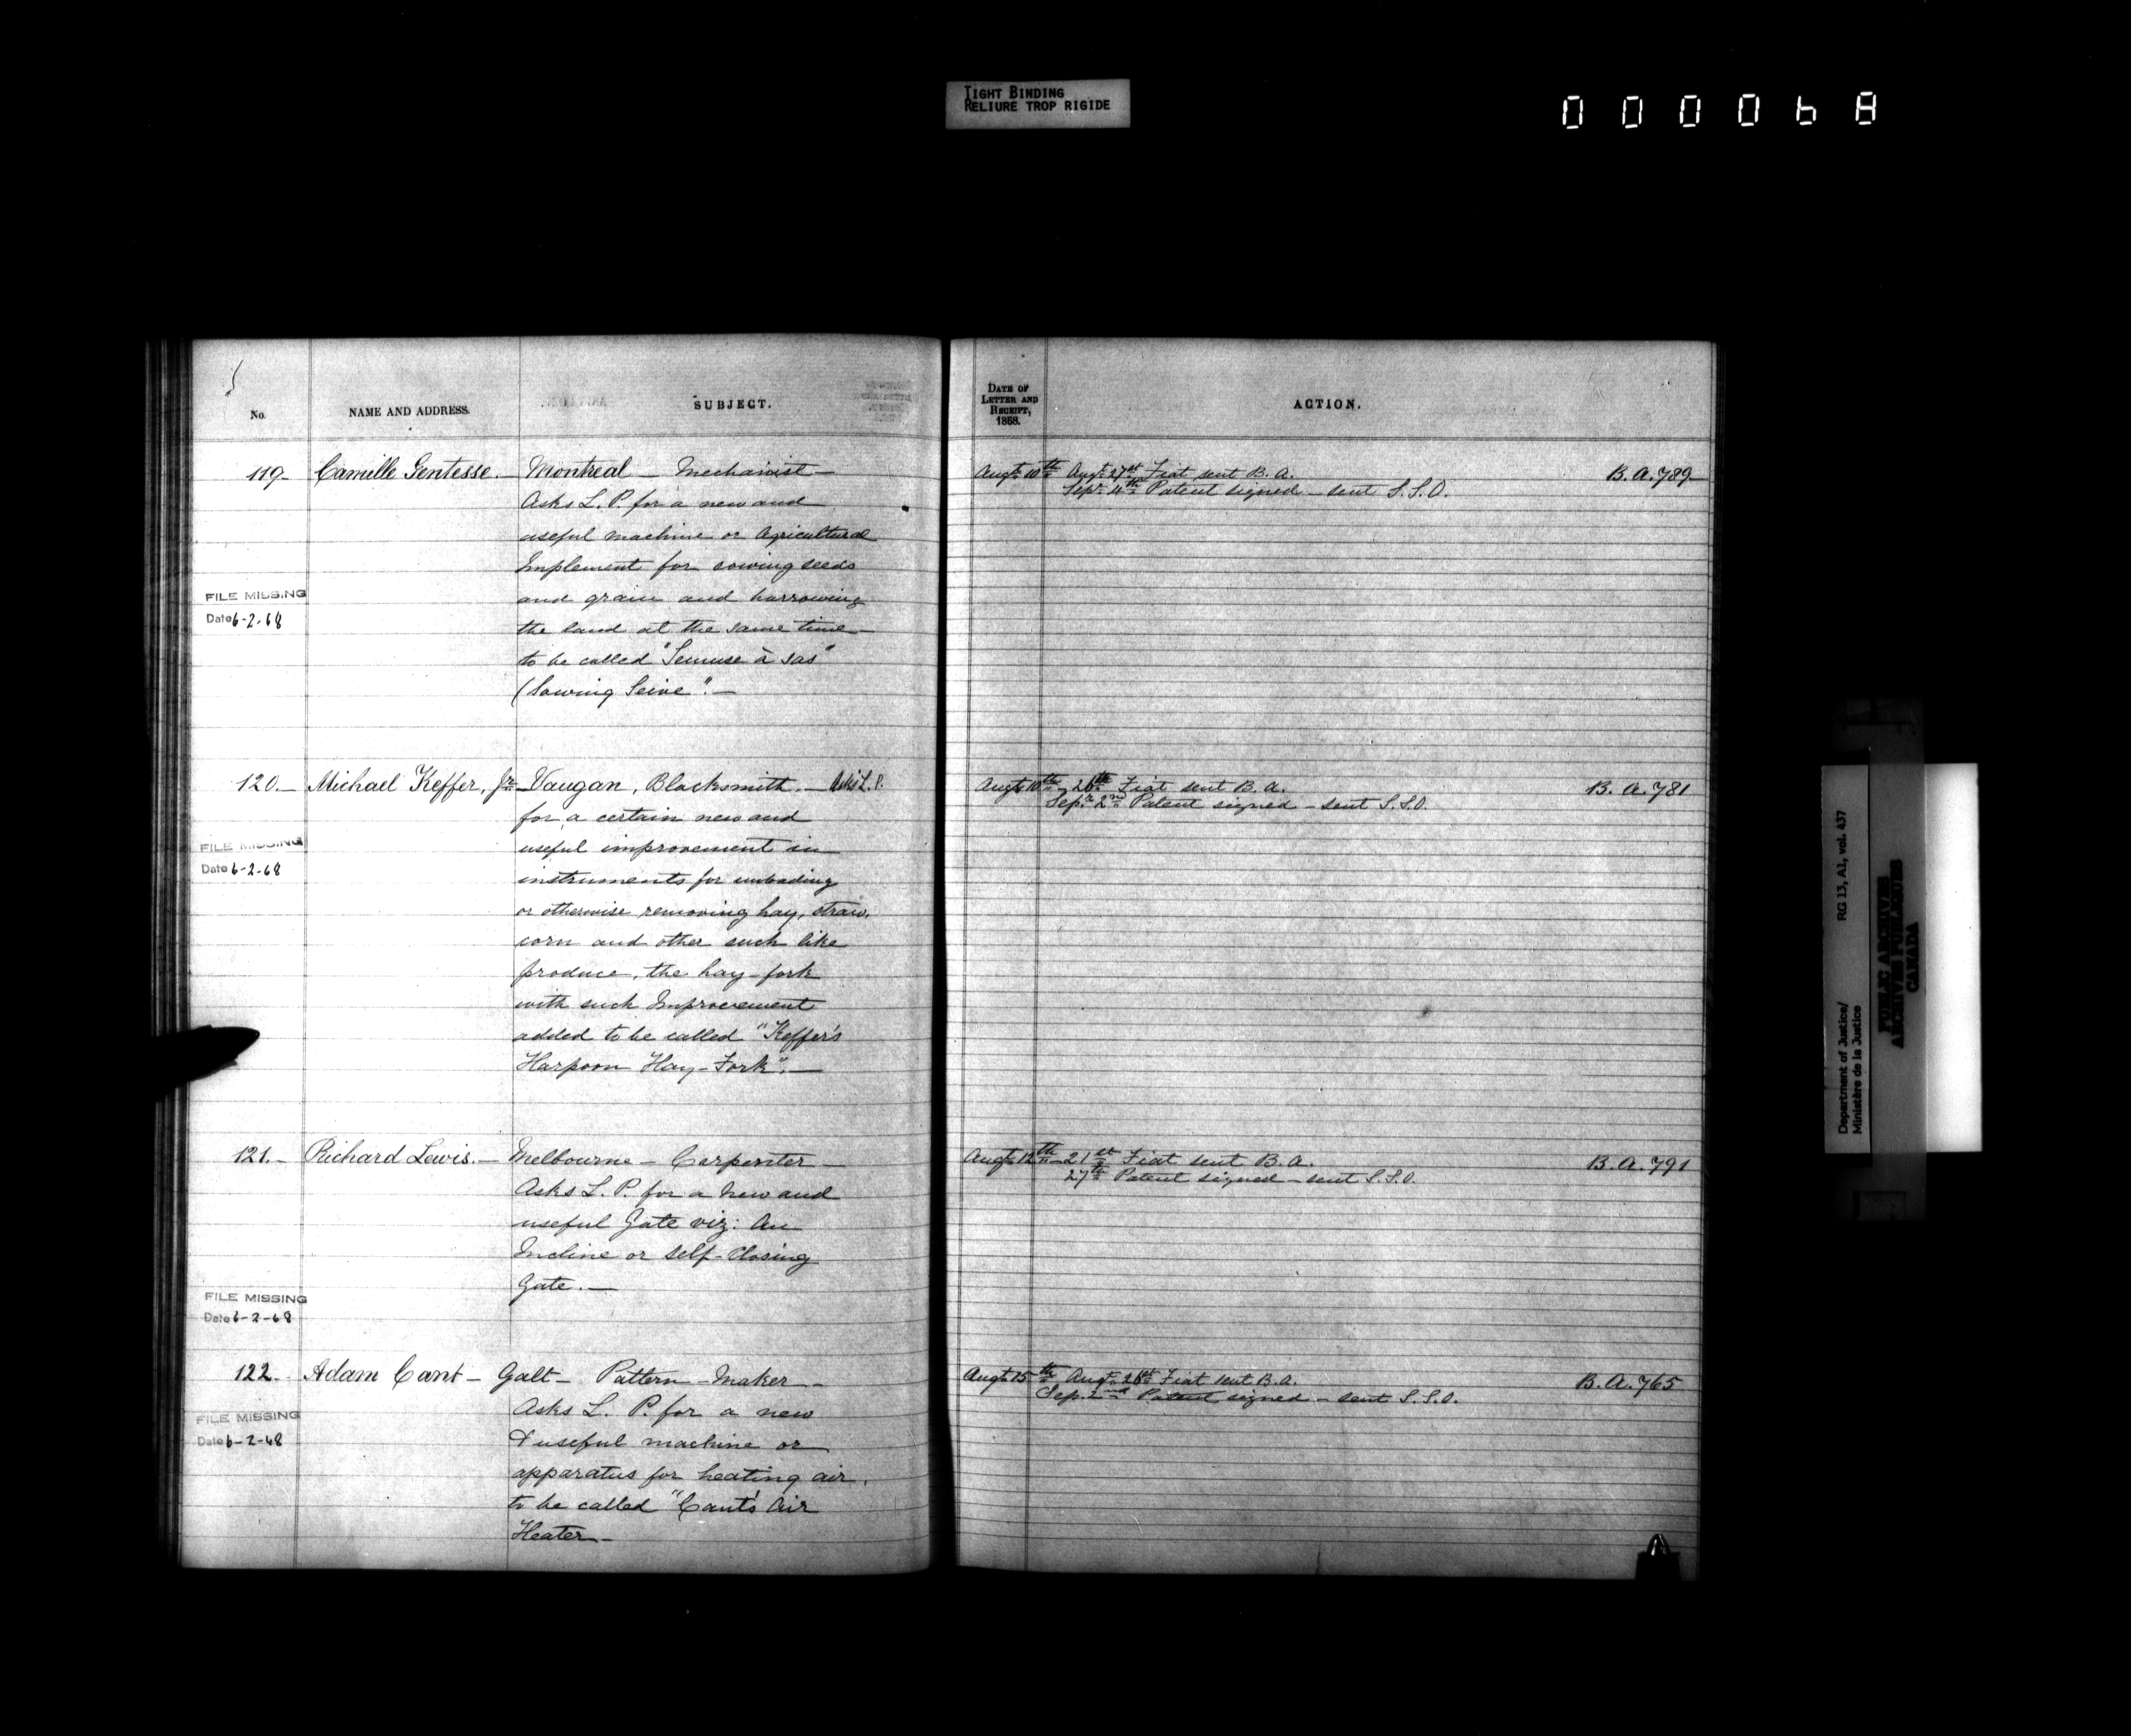 TIGHT BINDING
RELIURE TROP RIGIDE
000068
No.
NAME AND ADDRESS.
SUBJECT.
119- Camille Gentesse. - Montreal - Mechanist -
Asks L. P. for a new and
useful machine or Agricultural
Implement for sowing seeds
and grain and harrowing
the land at the same time -
to be called "Semuse à sas"
(Sowing Seive". -
FILE MISSING
Date 6-2-68
120. - Michael Keffer, Jr. - Vaugan, Blacksmith. - Asks L. P.
for a certain new and
useful improvement in
instruments for unloading
or otherwise removing hay, straw,
corn and other such like
produce, the hay-fork
with such Improvement
added to be called "Keffer's
Harpoon Hay-Fork". -
FILE MISSING
Date 6-2-68
121. - Richard Lewis. - Melbourne - Carpenter -
Asks L. P. for a new and
useful Gate viz: An
Incline or self-closing
Gate. -
FILE MISSING
Date 6-2-68
122. Adam Cant - Galt - Pattern-Maker -
Asks L. P. for a new
& useful machine or
apparatus for heating air,
to be called "Cant's Air
Heater -
FILE MISSING
Date 6-2-68
DATE OF
LETTER AND
RECEIPT,
1868.
ACTION.
Augt. 10th Augt. 27st Fiat sent B. A. B. A. 789-
Sepr. 4th Patent signed - sent S. S. O.
Augt. 10th - 26th Fiat sent B. A. B. A. 781
Sepr. 2nd Patent signed - sent S. S. O.
Augt. 12th - 21st Fiat sent B. A. B. A. 791
27th Patent signed - sent S. S. O.
Augt. 15th Augt. 26st Fiat sent B. A. B. A. 765
Sep. 2nd Patent signed - sent S. S. O.
Department of Justice/ RG 13, A1, vol. 437
Ministère de la Justice
PUBLIC ARCHIVES
ARCHIVES PUBLIQUES
CANADA